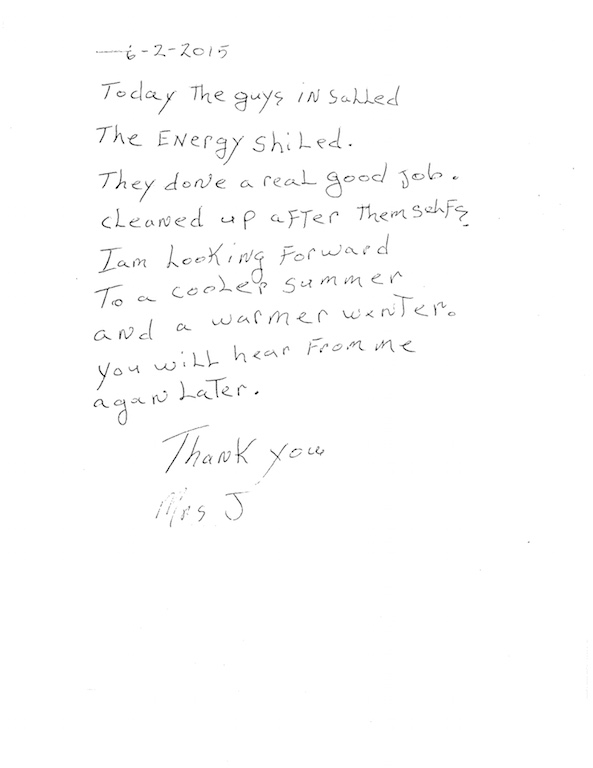 6-2-2015
Today The guys in Salled
The Energy shiled.
They done a real good job.
cleaned up after Themselfs
I am Looking Forward
To a cooler summer
and a warmer winter.
you will hear From me
agan Later.
Thank you
Mrs J